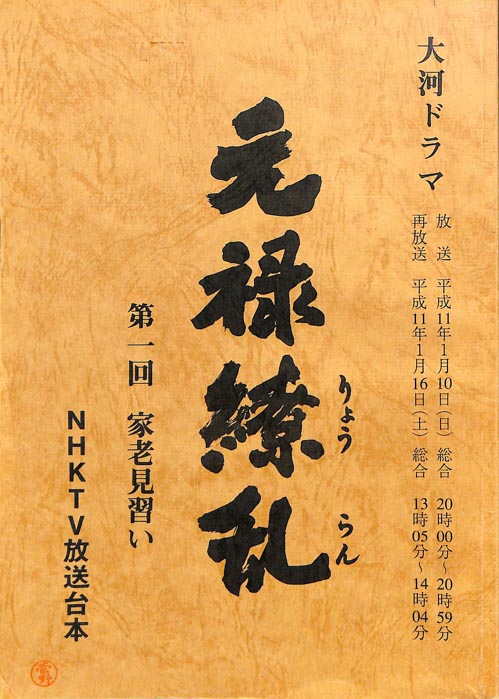 大河ドラマ
放送 平成11年1月10日(日) 総合 20時00分〜20時59分
再放送 平成11年1月16日(土) 総合 13時05分〜14時04分
元禄繚乱
りょう らん
第一回 家老見習い
NHKTV放送台本